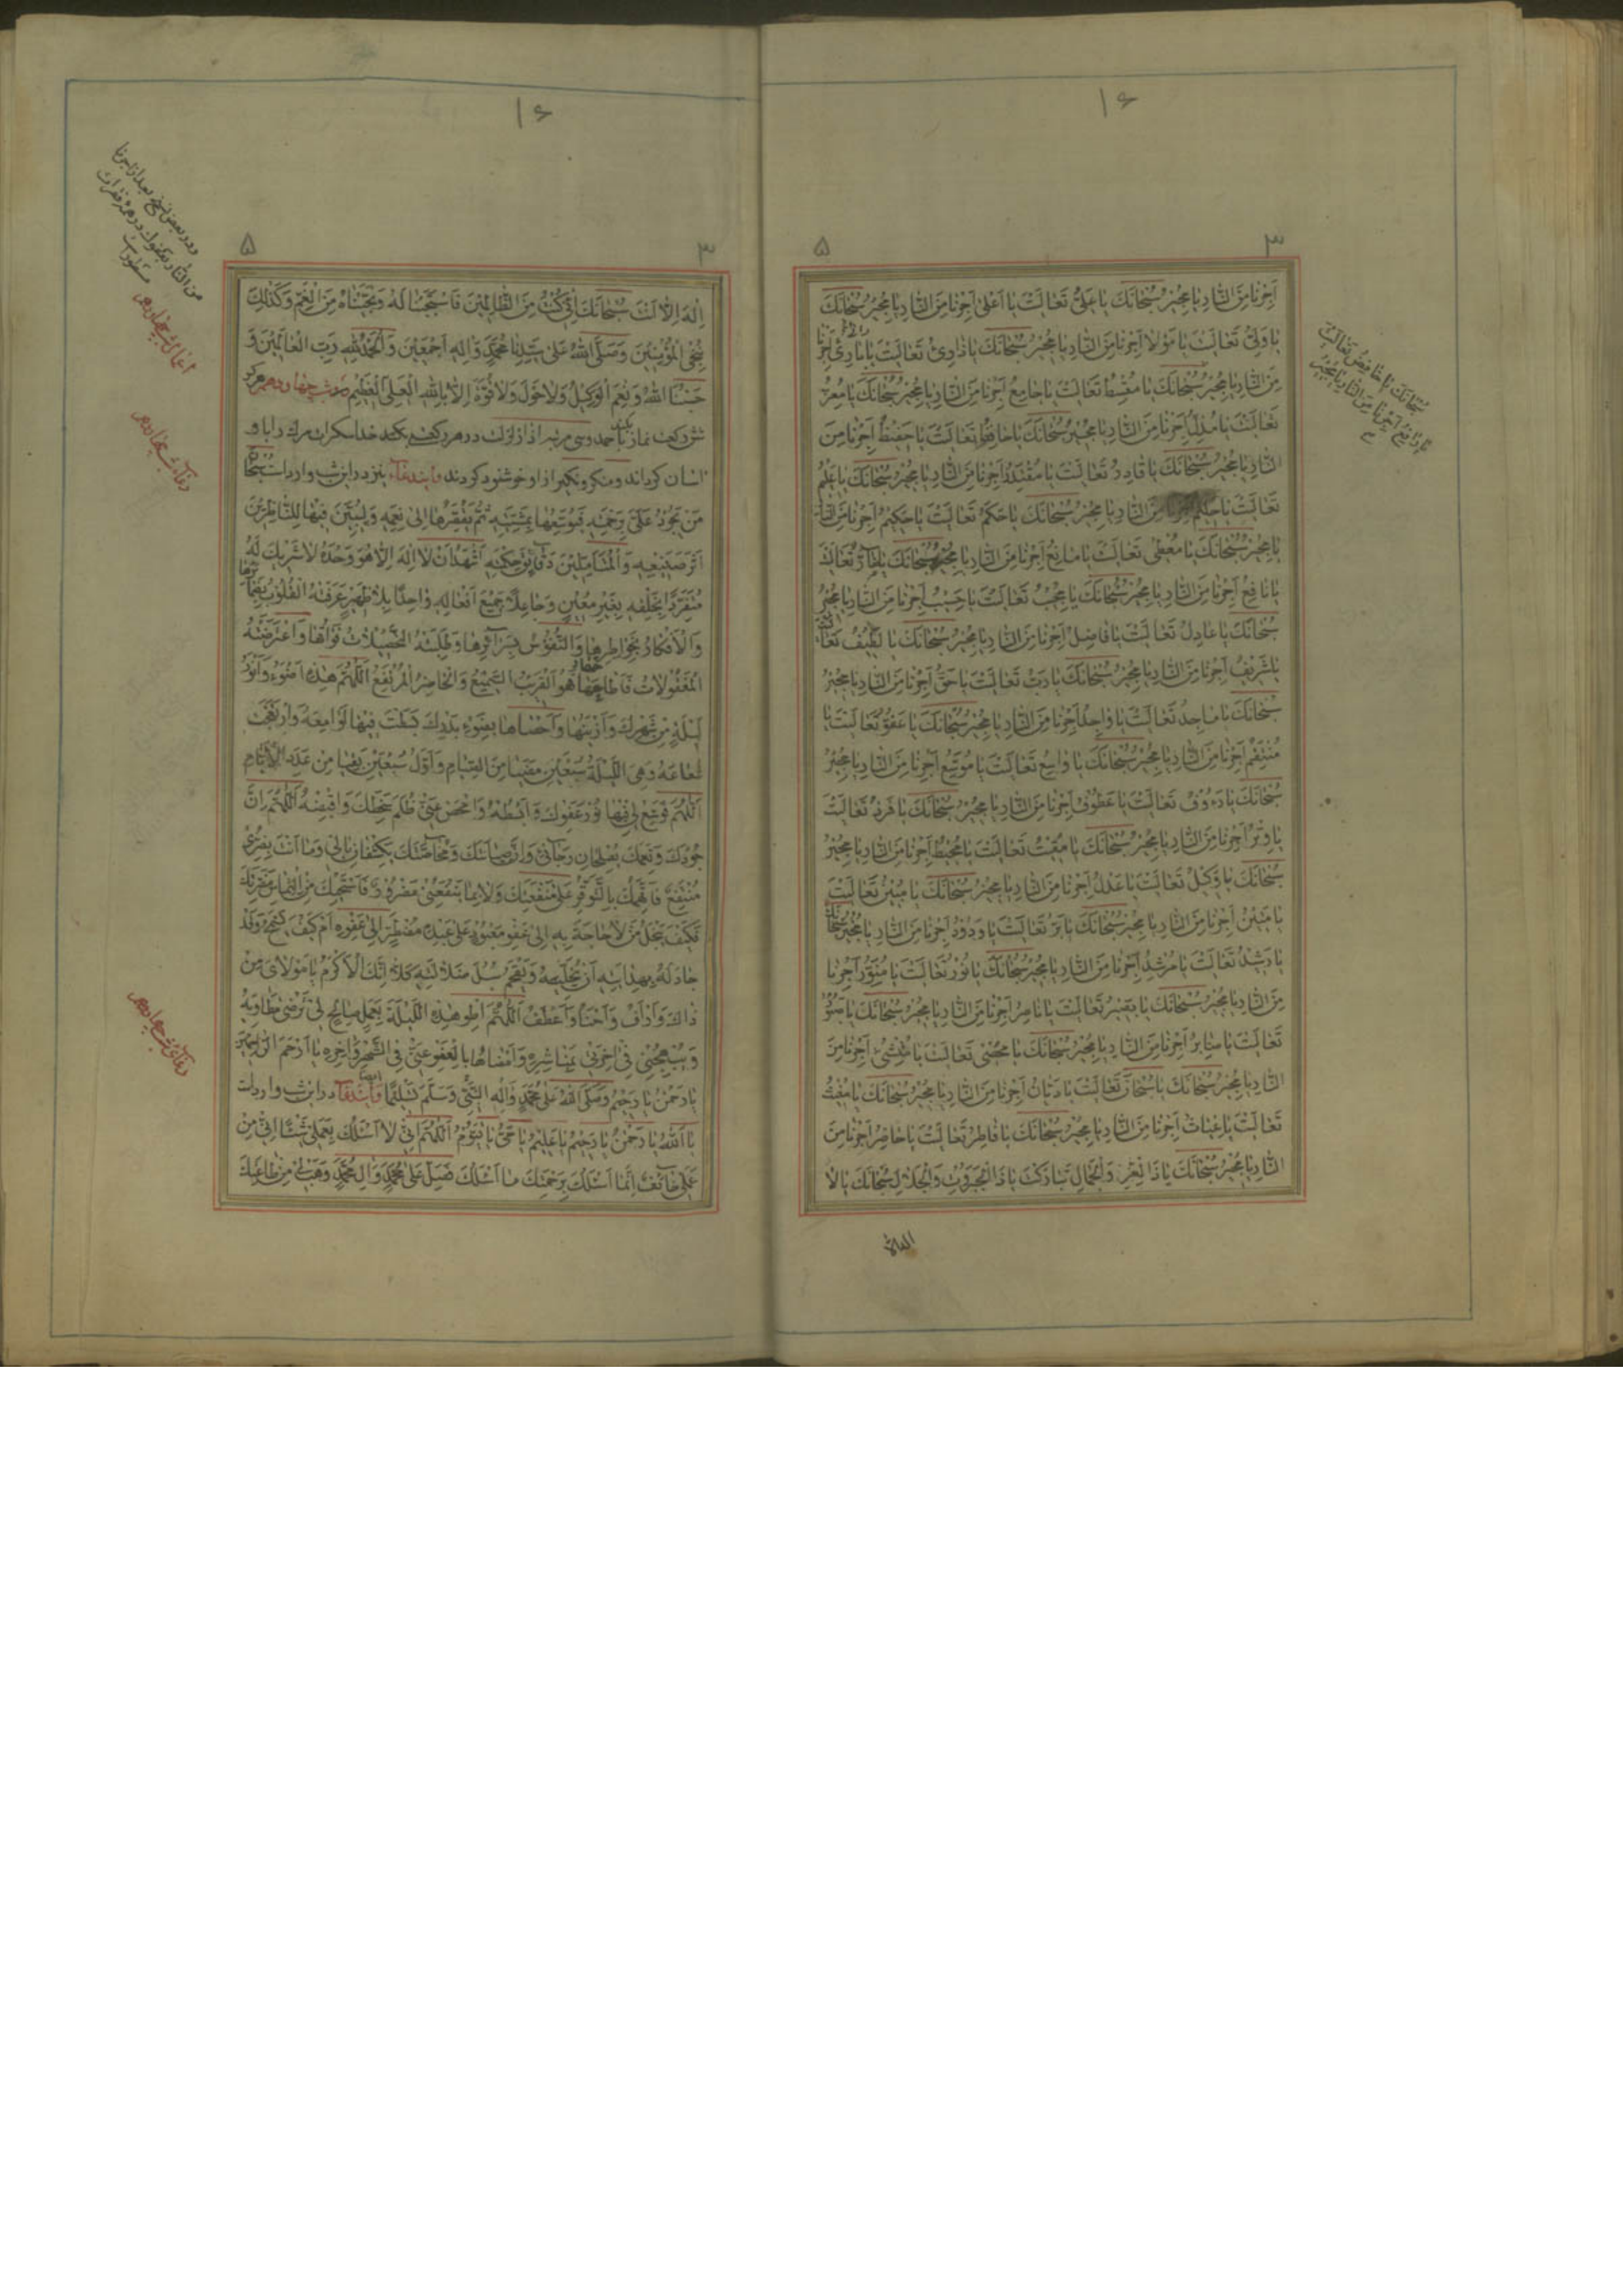 ۱۶
۳ ۵
اَجِرْنا مِنَ النّارِ يا مُجيرُ سُبْحانَكَ يا عَلِىُّ تَعالَيْتَ يا اَعْلى اَجِرْنا مِنَ النّارِ يا مُجيرُ سُبْحانَكَ
يا وَلِىُّ تَعالَيْتَ يا مَوْلا اَجِرْنا مِنَ النّارِ يا مُجيرُ سُبْحانَكَ يا ذارِئُ تَعالَيْتَ يا بارِئُ اَجِرْنا
مِنَ النّارِ يا مُجيرُ سُبْحانَكَ يا مُقْسِطُ تَعالَيْتَ يا جامِعُ اَجِرْنا مِنَ النّارِ يا مُجيرُ سُبْحانَكَ يا مُعِزُّ
تَعالَيْتَ يا مُذِلُّ اَجِرْنا مِنَ النّارِ يا مُجيرُ سُبْحانَكَ يا حافِظُ تَعالَيْتَ يا حَفيظُ اَجِرْنا مِنَ
النّارِ يا مُجيرُ سُبْحانَكَ يا قادِرُ تَعالَيْتَ يا مُقْتَدِرُ اَجِرْنا مِنَ النّارِ يا مُجيرُ سُبْحانَكَ يا عَليمُ
تَعالَيْتَ يا حَليمُ مِنَ النّارِ يا مُجيرُ سُبْحانَكَ يا حَكَمُ تَعالَيْتَ يا حَكيمُ اَجِرْنا مِنَ النّارِ
يا مُجيرُ سُبْحانَكَ يا مُعْطى تَعالَيْتَ يا مانِعُ اَجِرْنا مِنَ النّارِ يا مُجيرُ سُبْحانَكَ يا ضارُّ تَعالَيْتَ
يا نافِعُ اَجِرْنا مِنَ النّارِ يا مُجيرُ سُبْحانَكَ يا مُجيبُ تَعالَيْتَ يا حَسيبُ اَجِرْنا مِنَ النّارِ يا مُجيرُ
سُبْحانَكَ يا عادِلُ تَعالَيْتَ يا فاضِلُ اَجِرْنا مِنَ النّارِ يا مُجيرُ سُبْحانَكَ يا لَطيفُ تَعالَيْتَ
يا شَريفُ اَجِرْنا مِنَ النّارِ يا مُجيرُ سُبْحانَكَ يا رَبُّ تَعالَيْتَ يا حَقُّ اَجِرْنا مِنَ النّارِ يا مُجيرُ
سُبْحانَكَ يا ماجِدُ تَعالَيْتَ يا واحِدُ اَجِرْنا مِنَ النّارِ يا مُجيرُ سُبْحانَكَ يا عَفُوُّ تَعالَيْتَ يا
مُنْتَقِمُ اَجِرْنا مِنَ النّارِ يا مُجيرُ سُبْحانَكَ يا واسِعُ تَعالَيْتَ يا مُوَسِّعُ اَجِرْنا مِنَ النّارِ يا مُجيرُ
سُبْحانَكَ يا رَءُوفُ تَعالَيْتَ يا عَطُوفُ اَجِرْنا مِنَ النّارِ يا مُجيرُ سُبْحانَكَ يا فَرْدُ تَعالَيْتَ
يا وِتْرُ اَجِرْنا مِنَ النّارِ يا مُجيرُ سُبْحانَكَ يا مُقيتُ تَعالَيْتَ يا مُحيطُ اَجِرْنا مِنَ النّارِ يا مُجيرُ
سُبْحانَكَ يا وَكيلُ تَعالَيْتَ يا عَدْلُ اَجِرْنا مِنَ النّارِ يا مُجيرُ سُبْحانَكَ يا مُبينُ تَعالَيْتَ
يا مَتينُ اَجِرْنا مِنَ النّارِ يا مُجيرُ سُبْحانَكَ يا بَرُّ تَعالَيْتَ يا وَدُودُ اَجِرْنا مِنَ النّارِ يا مُجيرُ سُبْحانَكَ
يا رَشيدُ تَعالَيْتَ يا مُرْشِدُ اَجِرْنا مِنَ النّارِ يا مُجيرُ سُبْحانَكَ يا نُورُ تَعالَيْتَ يا مُنَوِّرُ اَجِرْنا
مِنَ النّارِ يا مُجيرُ سُبْحانَكَ يا نَصيرُ تَعالَيْتَ يا ناصِرُ اَجِرْنا مِنَ النّارِ يا مُجيرُ سُبْحانَكَ يا صَبُورُ
تَعالَيْتَ يا صابِرُ اَجِرْنا مِنَ النّارِ يا مُجيرُ سُبْحانَكَ يا مُحْصى تَعالَيْتَ يا مُنْشِئُ اَجِرْنا مِنَ
النّارِ يا مُجيرُ سُبْحانَكَ يا سُبْحانُ تَعالَيْتَ يا دَيّانُ اَجِرْنا مِنَ النّارِ يا مُجيرُ سُبْحانَكَ يا مُغيثُ
تَعالَيْتَ يا غِياثُ اَجِرْنا مِنَ النّارِ يا مُجيرُ سُبْحانَكَ يا فاطِرُ تَعالَيْتَ يا حاضِرُ اَجِرْنا مِنَ
النّارِ يا مُجيرُ سُبْحانَكَ يا ذَا الْعِزِّ وَالْجَمالِ تَبارَكْتَ يا ذَا الْجَبَرُوتِ وَالْجَلالِ سُبْحانَكَ يا لا
سُبْحانَكَ يا خافِضُ تَعالَيْتَ
يا رافِعُ اَجِرْنا مِنَ النّارِ يا مُجيرُ
۱۶
۳ ۵
اِلهَ اِلاّ اَنْتَ سُبْحانَكَ اِنّى كُنْتُ مِنَ الظّالِمينَ فَاسْتَجَبْنا لَهُ وَنَجَّيْناهُ مِنَ الْغَمِّ وَكَذلِكَ
نُنْجِى الْمُؤْمِنينَ وَصَلَّى اللهُ عَلى سَيِّدِنا مُحَمَّدٍ وَالِهِ اَجْمَعينَ وَالْحَمْدُ لِلّهِ رَبِّ الْعالَمينَ وَ
حَسْبُنَا اللهُ وَنِعْمَ الْوَكيلُ وَلا حَوْلَ وَلا قُوَّةَ اِلاّ بِاللهِ الْعَلِىِّ الْعَظيمِ شب چهاردهم هركه
شش ركعت نماز بكند با حمد وسى مرتبه اذا زلزلت در هر ركعتى بكند خدا سكرات مرك را باو
اسان كرداند ومنكر ونكير از او خوشنود كردند وايندعاء نيز در اين شب وارد است سُبْحانَ
مَنْ يَجُودُ عَلَىَّ بِرَحْمَتِهِ فَيُوَسِّعُها بِمَشِيَّتِهِ ثُمَّ اِلى نِعَمِهِ فيها لِلنّاظِرينَ
اَثَرَ صَنيعِهِ وَالْمُتَاَمِّلينَ دَقائِقَ حِكْمَتِهِ اَشْهَدُ اَنْ لا اِلهَ اِلاّ هُوَ وَحْدَهُ لا شَريكَ لَهُ
مُتَفَرِّدًا بِخَلْقِهِ بِغَيْرِ مُعينٍ وَجاعِلاً جَميعَ اَفْعالِهِ واحِدًا بِلا ظَهيرٍ عَرَفَتْهُ الْقُلُوبُ بِضَمائِرِها
وَالْاَفْكارُ بِخَواطِرِها وَالنُّفُوسُ بِسَرائِرِها وَطَلَبَتْهُ التَّحْصيلاتُ فَفاتَها وَاعْتَرَضَتْهُ
الْمَفْعُولاتُ فَاَطاعَها فَهُوَ الْقَريبُ السَّميعُ وَالْحاضِرُ الْمُرْتَفِعُ اَللّهُمَّ هذِهِ اَضْوَءُ وَاَنْوَرُ
لَيْلَةٍ مِنْ شَهْرِكَ وَاَزْيَنُها وَاَحْصاها بِضَوْءِ بَدْرِكَ فيها لَوامِعُهُ
شُعاعُهُ وَهِىَ اللَّيْلَةُ سَبْعَيْنِ مَضَيا مِنَ الصِّيامِ وَاَوَّلُ سَبْعَيْنِ بَقِيا مِنْ عَدَدِ الْاَيّامِ
اَللّهُمَّ فَوَسِّعْ لى فيها نُورَ عَفْوِكَ وَابْسُطْهُ وَامْحَصْ عَنّى ظُلَمَ سَخَطِكَ وَاقْبِضْهُ اَللّهُمَّ اِنَّ
جُودَكَ وَنِعَمَكَ يُصْلِحانِ رَجائى وَاِنَّ وَما اَنْتَ بِضُرّى
وَلا بِما يَنْفَعُنى
فَكَيْفَ يَبْخَلُ مَنْ لا حاجَةَ بِهِ اِلى عَفْوِ مَعْبُودٍ عَلى عَبْدٍ مُضْطَرٍّ اِلى عَفْوِهِ اَمْ كَيْفَ وَقَدْ
جادَ لَهُ بِهِدايَتِهِ اَنْ سُبُلَ كَلاّ اِنَّكَ الْاَكْرَمُ يا مَوْلاىَ مِنْ
ذلِكَ وَاَرْاَفُ وَاَحْنا وَاَعْطَفُ اَللّهُمَّ اطْوِ هذِهِ اللَّيْلَةَ بِعَمَلٍ صالِحٍ لى تَرْضى مَطاوِيَهُ
فى اخِرَتى وَاَمْضاها بِالْعَفْوِ عَنّى فِى الشَّهْرِ وَاخِرِهِ يا اَرْحَمَ الرّاحِمينَ
يا رَحْمنُ يا رَحيمُ وَصَلَّى اللهُ عَلى مُحَمَّدٍ وَالِهِ النَّبِىِّ وَسَلَّمَ تَسْليمًا وايندعاء ايضًا در اين شب وارد است
يا اَللهُ يا رَحْمنُ يا رَحيمُ يا عَليمُ يا حَىُّ يا قَيُّومُ اَللّهُمَّ اِنّى لا اَسْئَلُكَ بِعَمَلى شَيْئًا اِنّى مِنْ
عَمَلى خائِفٌ اِنَّما اَسْئَلُكَ بِرَحْمَتِكَ ما اَسْئَلُكَ فَصَلِّ عَلى مُحَمَّدٍ وَالِ مُحَمَّدٍ وَهَبْ لى مِنْ طاعَتِكَ
ودر بعض نسخ بعد از اجرنا
من النار بعفوك در همه فقرات
اعمال شب چهاردهم
دعاء شب چهاردهم
دعاء شب چهاردهم